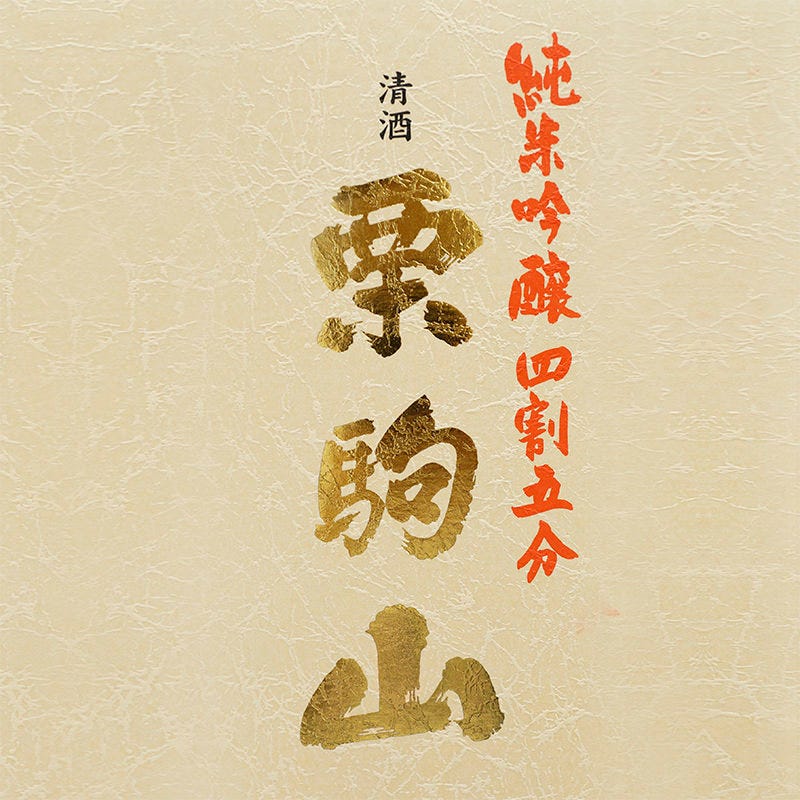 純米吟醸四割五分
清酒
栗駒山